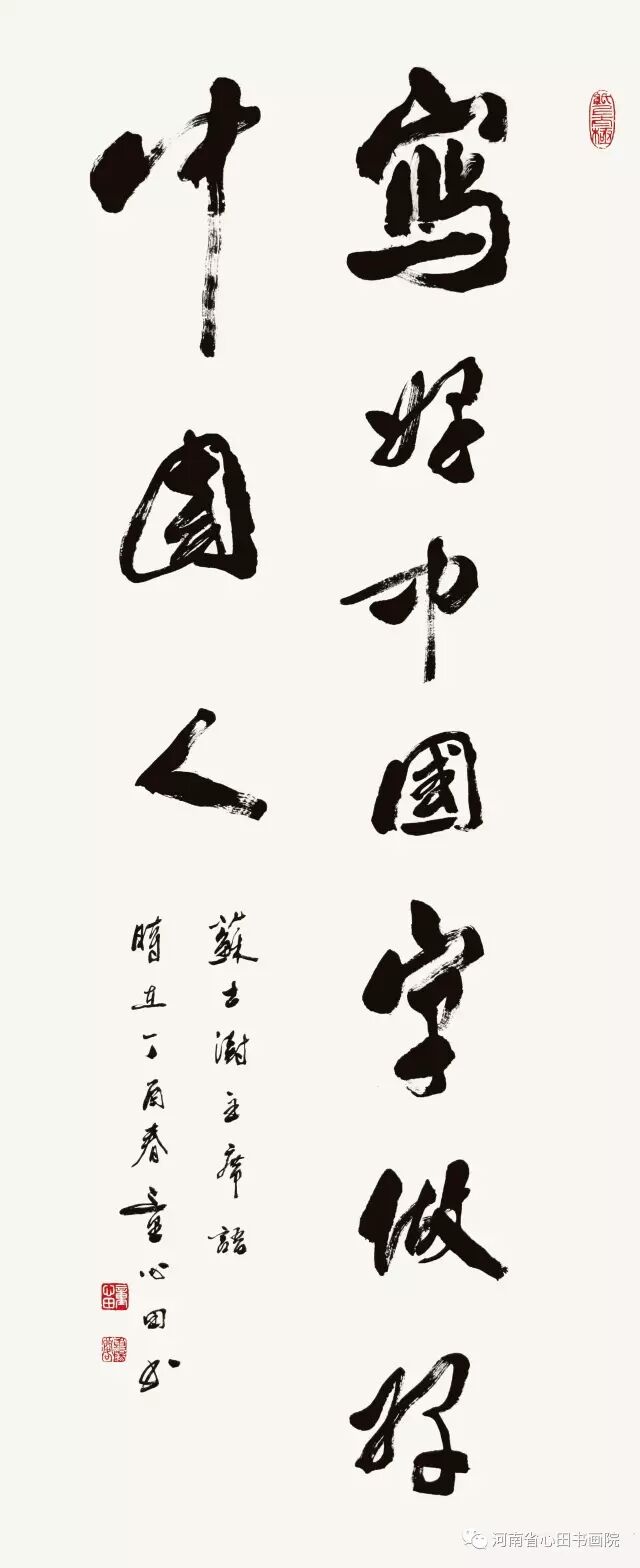 寫好中國字做好
中國人
蘇士澍主席語
時在丁酉春童心田书
河南省心田书画院